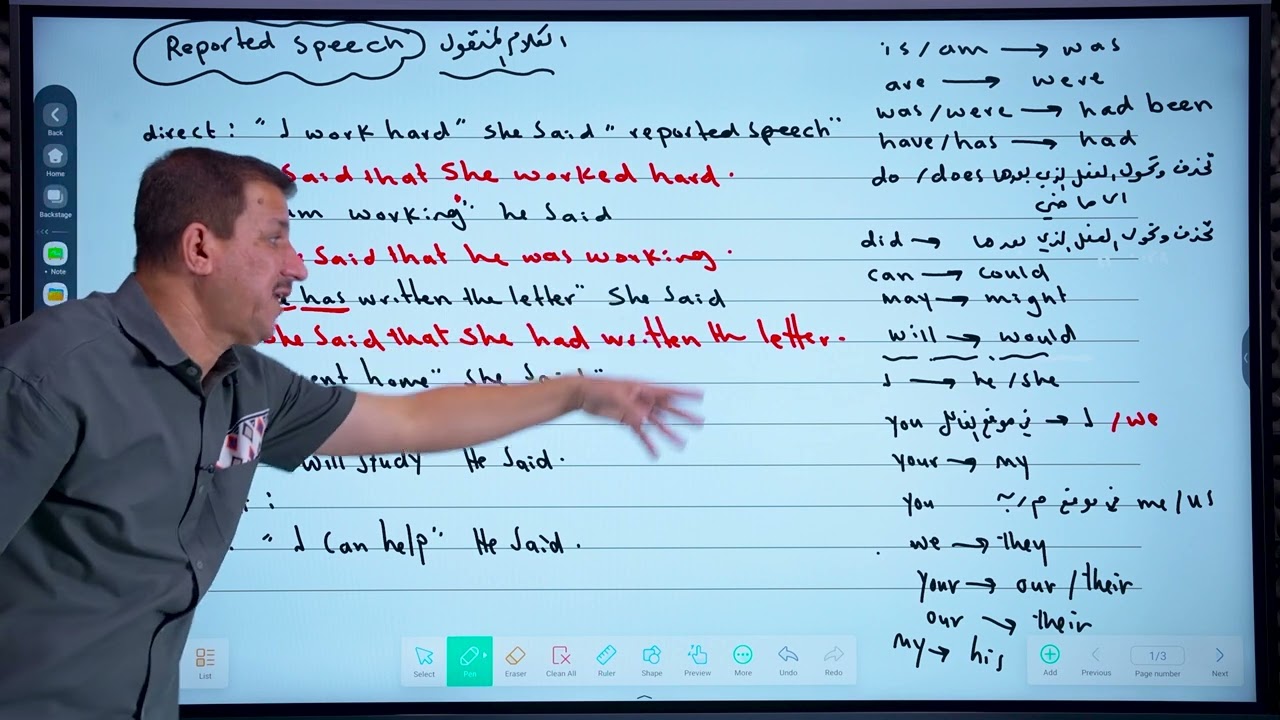 Reported Speech الكلام المنقول
direct: " I work hard" she said " reported speech"
said that she worked hard.
am working" he said
said that he was working.
has written the letter" she said
she said that she had written th letter.
home" she said "
will study He said.
:
" I can help" He said.
is/am → was
are → were
was/were → had been
have/has → had
do/does تحذف وتحول الفعل الذي بعدها
الى ماضي
did → تحذف وتحول الفعل الذي بعدها
can → could
may → might
will → would
I → he/she
you في موقع الفاعل → I /we
your → my
you في موقع م.به me/us
we → they
your → our/their
our → their
my → his
Back
Home
Backstage
Note
List
Select
Pen
Eraser
Clean All
Ruler
Shape
Preview
More
Undo
Redo
Add
Previous
1/3
Page number
Next